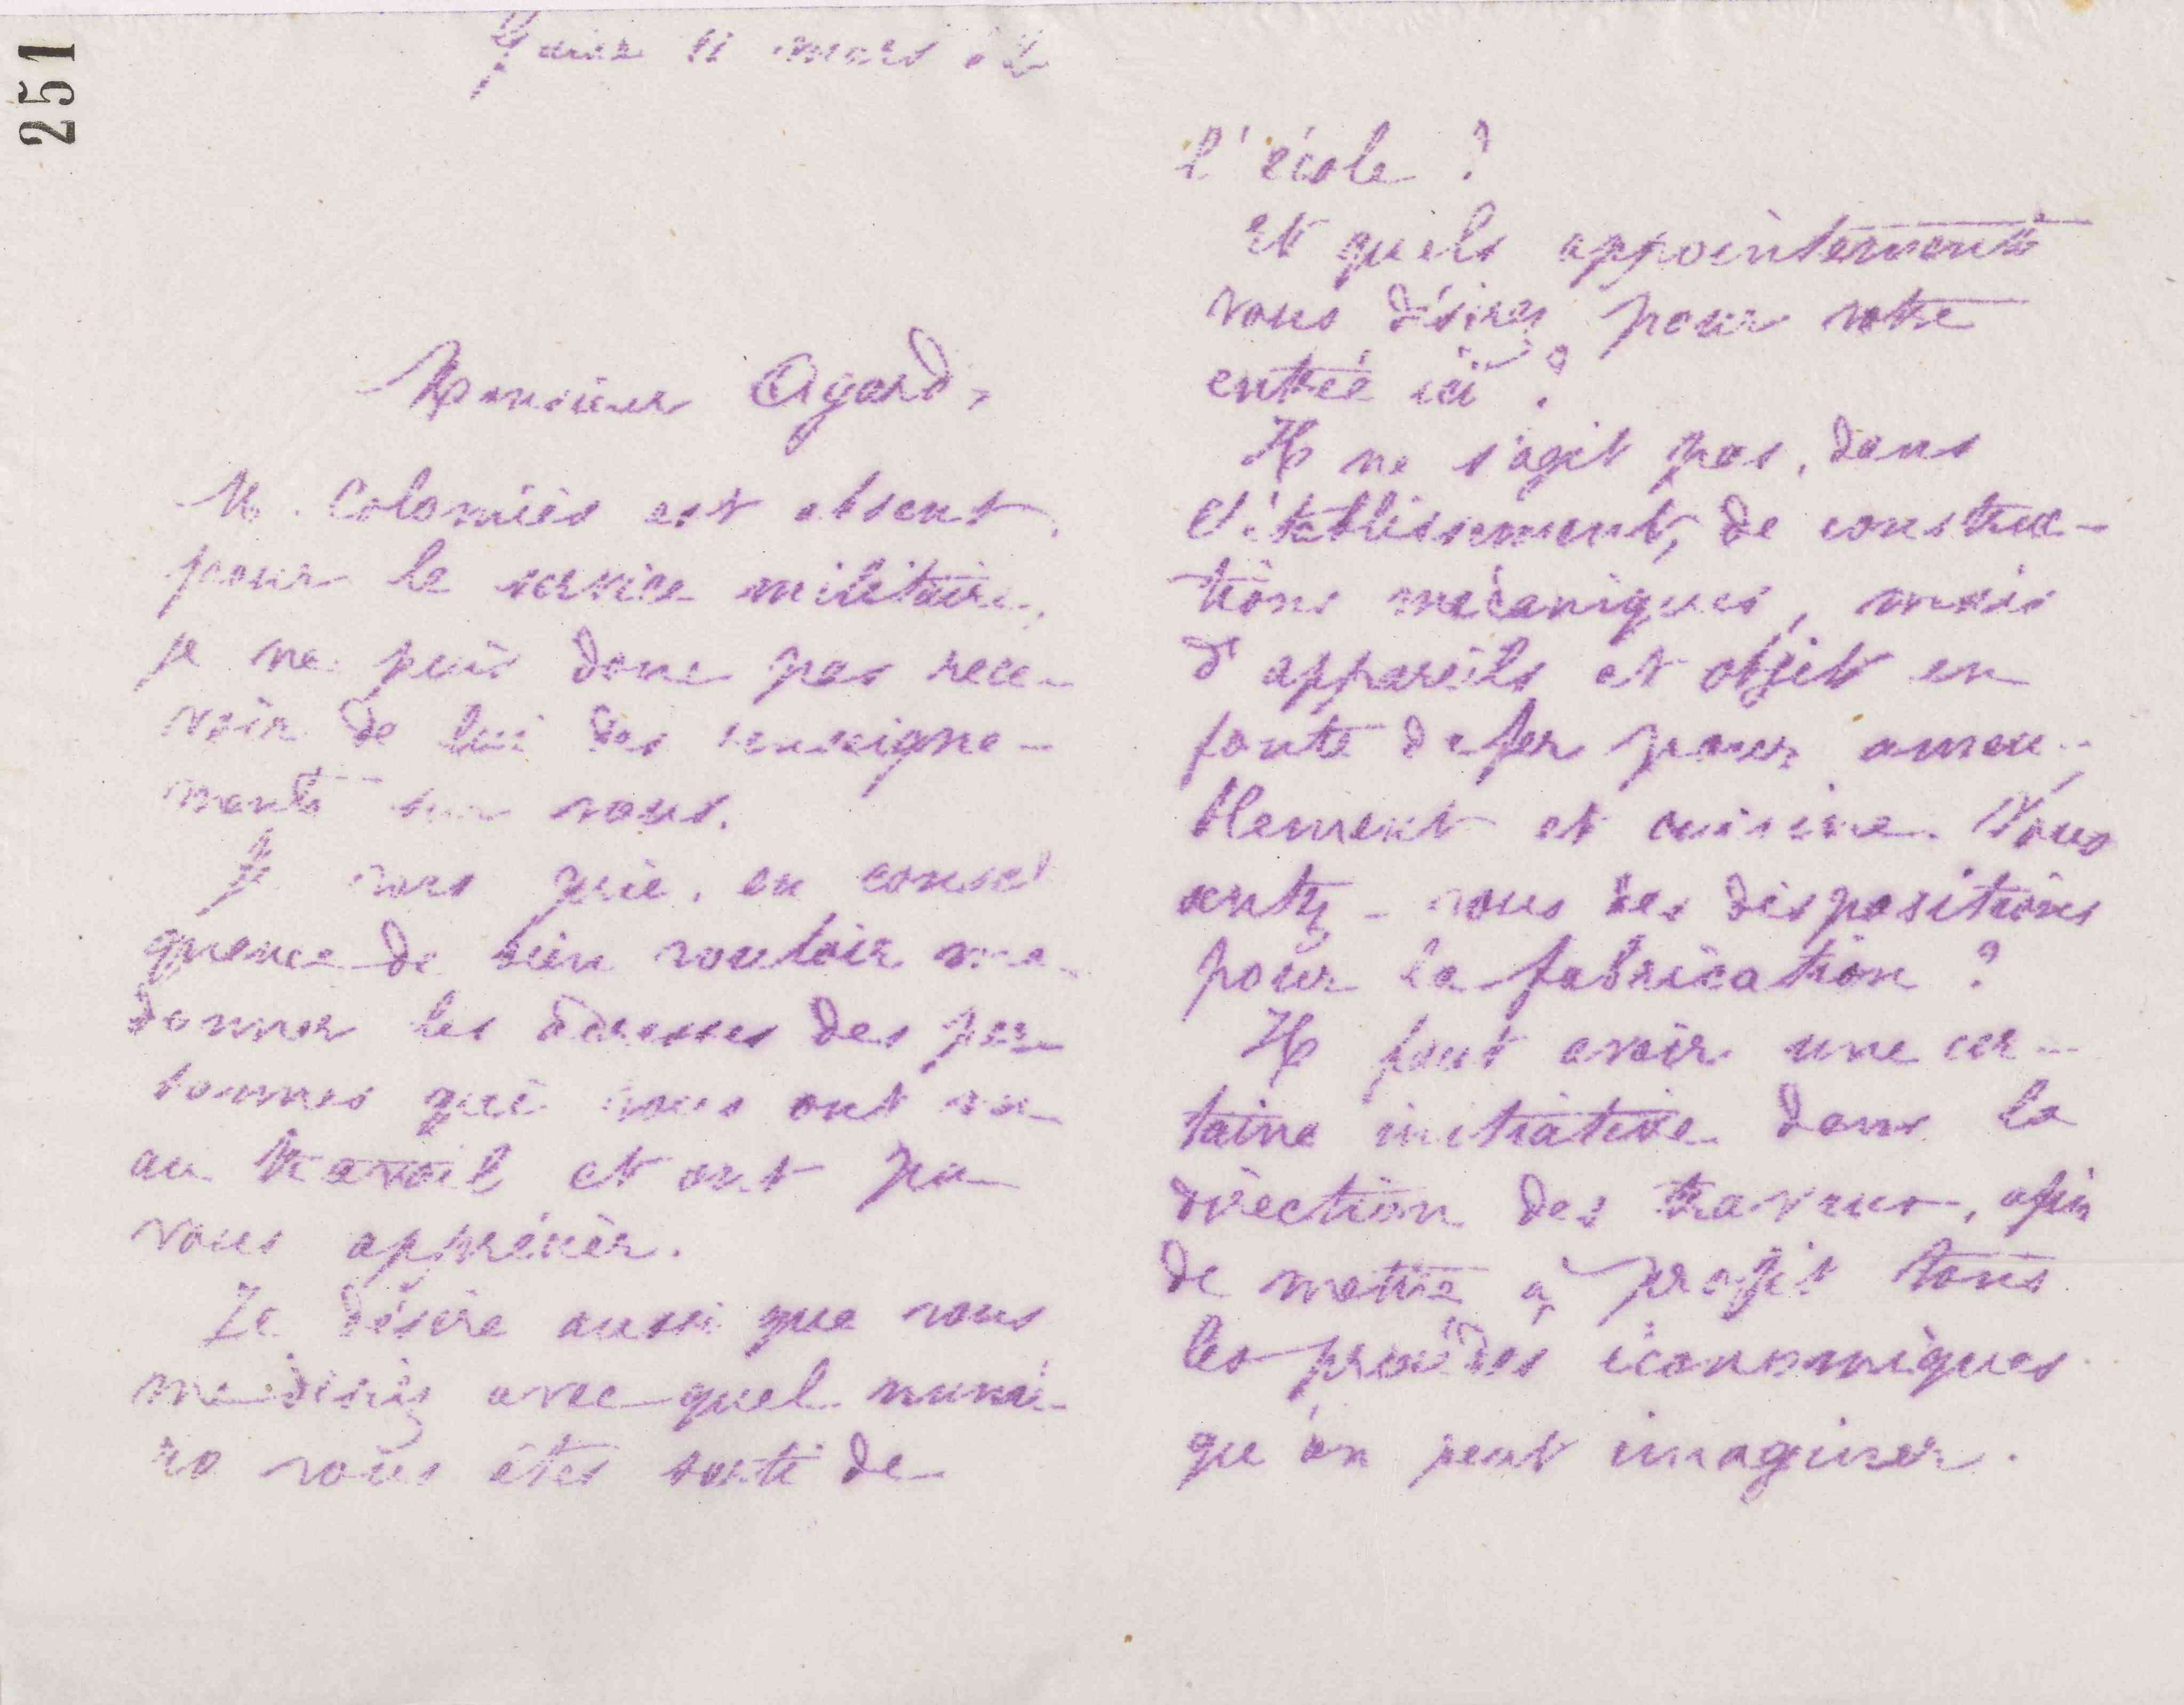 251
Guise 11 mars 82
Monsieur Agard,
M. Colomiès est absent,
pour le service militaire,
je ne puis donc pas rece-
voir de lui des renseigne-
ments sur vous.
Je vous prie, en consé
quence de bien vouloir me
donner les adresses des per
sonnes qui vous ont vu
au travail et ont pu
vous apprécier.
Je désire aussi que vous
me disiez avec quel numé-
ro vous êtes sorti de
l'école ?
Et quels appointements
vous désirez pour votre
entrée ici ?
Il ne s'agit pas, dans
l'établissement, de construc-
tions mécaniques, mais
d'appareils et objets en
fonte de fer pour ameu-
blement et cuisine. Vous
sentez-vous des dispositions
pour la fabrication ?
Il faut avoir une cer-
taine initiative dans la
direction des travaux, afin
de mettre à profit tous
les procédés économiques
qu'on peut imaginer.